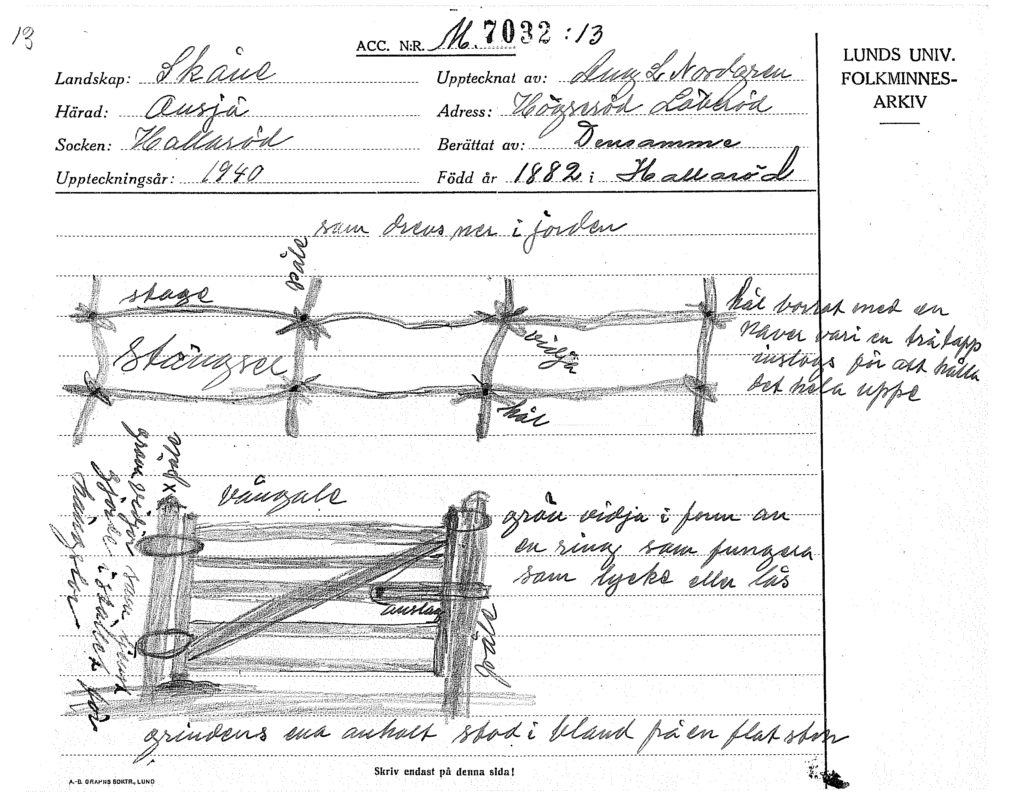 13
ACC. N:R. M. 7032 : 13
LUNDS UNIV.
FOLKMINNES-
ARKIV
Landskap: Skåne
Upptecknat av: Aug L Nordgren
Härad: Onsjö
Adress: Högseröd Löberöd
Socken: Hallaröd
Berättat av: Densamme
Uppteckningsår: 1940
Född år 1882 i Hallaröd
som drevs ner i jorden
påle
stage
Stängsel
vidja
hål
hål borrat med en
naver vari en trätapp
inslogs för att hålla
det hela uppe
påle x
gröna vidjor som tjänst
gjorde i stället för
hängslor
vångale
anslag
påle
grön vidja i form av
en ring som fungera
som lycke eller lås
grindens ena anhalt stod i bland på en flat sten
Skriv endast på denna sida!
A.-B. GRAPHS BOKTR., LUND